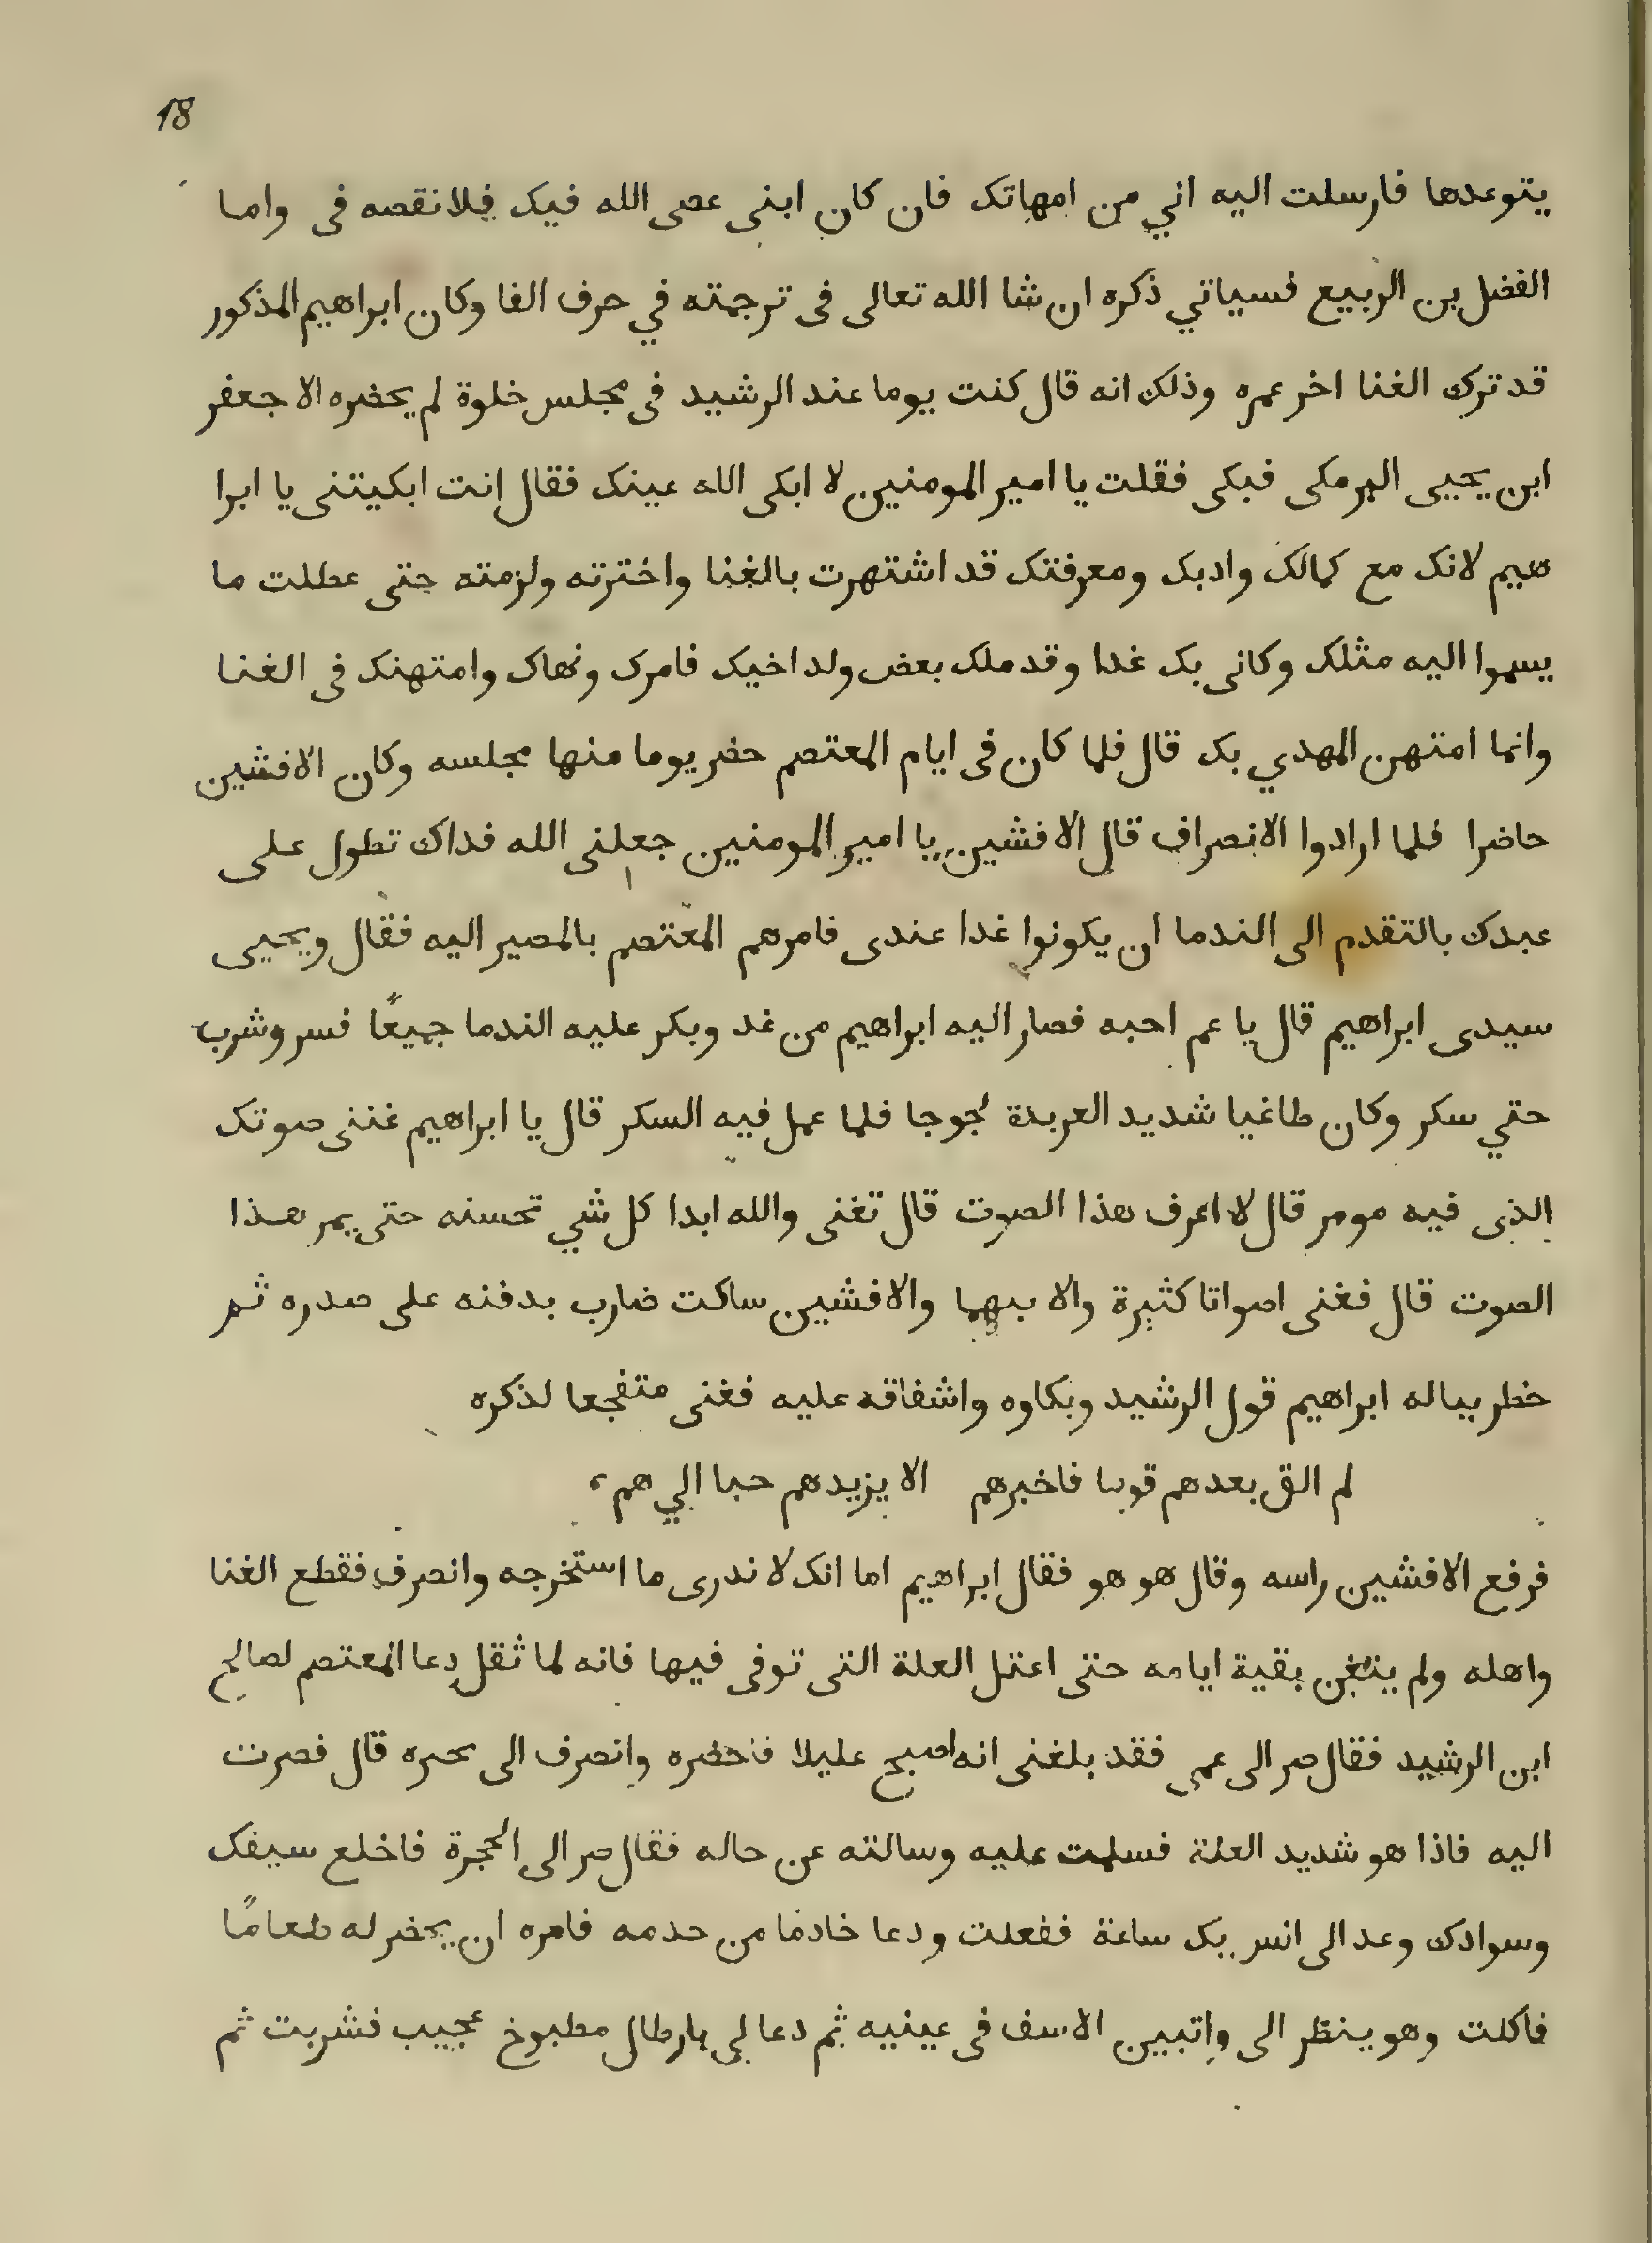 18
يتوعدها فارسلت اليه اني من امهاتك فان كان ابنى عصى الله فيك فلا نقصه فى واما
الفضل بن الربيع فسياتي ذكره ان شا الله تعالى فى ترجمته في حرف الفا وكان ابراهيم المذكور
قد ترك الغنا اخر عمره وذلك انه قال كنت يوما عند الرشيد فى مجلس خلوة لم يحضره الا جعفر
ابن يحيى البرمكى فبكى فقلت يا امير المومنين لا ابكى الله عينك فقال انت ابكيتنى يا ابرا
هيم لانك مع كمالك وادبك ومعرفتك قد اشتهرت بالغنا واخترته ولزمته حتى عطلت ما
يسموا اليه مثلك وكانى بك غدا وقد ملك بعض ولد اخيك فامرك ونهاك وامتهنك فى الغنا
وانما امتهن المهدي بك قال فلما كان فى ايام المعتصم حضر يوما منها مجلسه وكان الافشين
حاضرا فلما ارادوا الانصراف قال الافشين يا امير المومنين جعلنى الله فداك تطول على
عبدك بالتقدم الى الندما ان يكونوا غدا عندى فامرهم المعتصم بالمصير اليه فقال ويحيى
سيدى ابراهيم قال يا عم احبه فصار اليه ابراهيم من غد وبكر عليه الندما جميعًا فسر وشرب
حتي سكر وكان طاغيا شديد العربدة لجوجا فلما عمل فيه السكر قال يا ابراهيم غننى صوتك
الذى فيه مومر قال لا اعرف هذا الصوت قال تغنى والله ابدا كل شي تحسنه حتى يمر هذا
الصوت قال فغنى اصواتا كثيرة والافشين ساكت ضارب بدفنه على صدره ثم
خطر بباله ابراهيم قول الرشيد وبكاوه واشفاقه عليه فغنى متفجعا لذكره
لم الق بعدهم قوما فاخبرهم الا يزيدهم حبا الي هم
فرفع الافشين راسه وقال هو هو فقال ابراهيم اما انك لا تدرى ما استخرجه وانصرف فقطع الغنا
واهله ولم يتغن بقية ايامه حتى اعتل العلة التى توفى فيها فانه لما ثقل دعا المعتصم لصالح
ابن الرشيد فقال صر الى عمى فقد بلغنى انه اصبح عليلا فاحضره وانصرف الى قال فصرت
اليه فاذا هو شديد العلة فسلمت عليه وسالته عن حاله فقال صر الى الحجرة فاخلع سيفك
وسوادك وعد الى انس بك ساعة ففعلت ودعا خادما من خدمه فامره ان يحضر له طعامًا
فاكلت وهو ينظر الى واتبين الاسف فى عينيه ثم دعا لي بارطال مطبوخ عجيب فشربت ثم